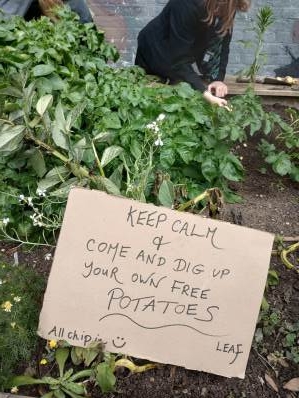 KEEP CALM
&
COME AND DIG UP
YOUR OWN FREE
POTATOES
All chip in
LEAF